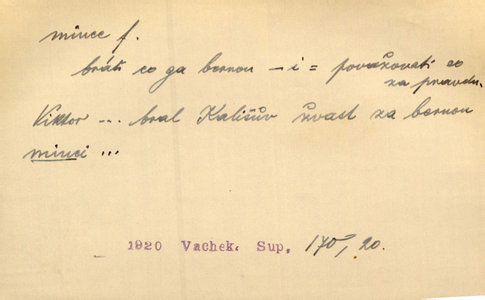 mince f.
bráti co za bernou – i = považovati co
za pravdu.
Viktor ... bral Kališův žvast za bernou
minci ...
1920 Vachek. Sup, 170, 20.